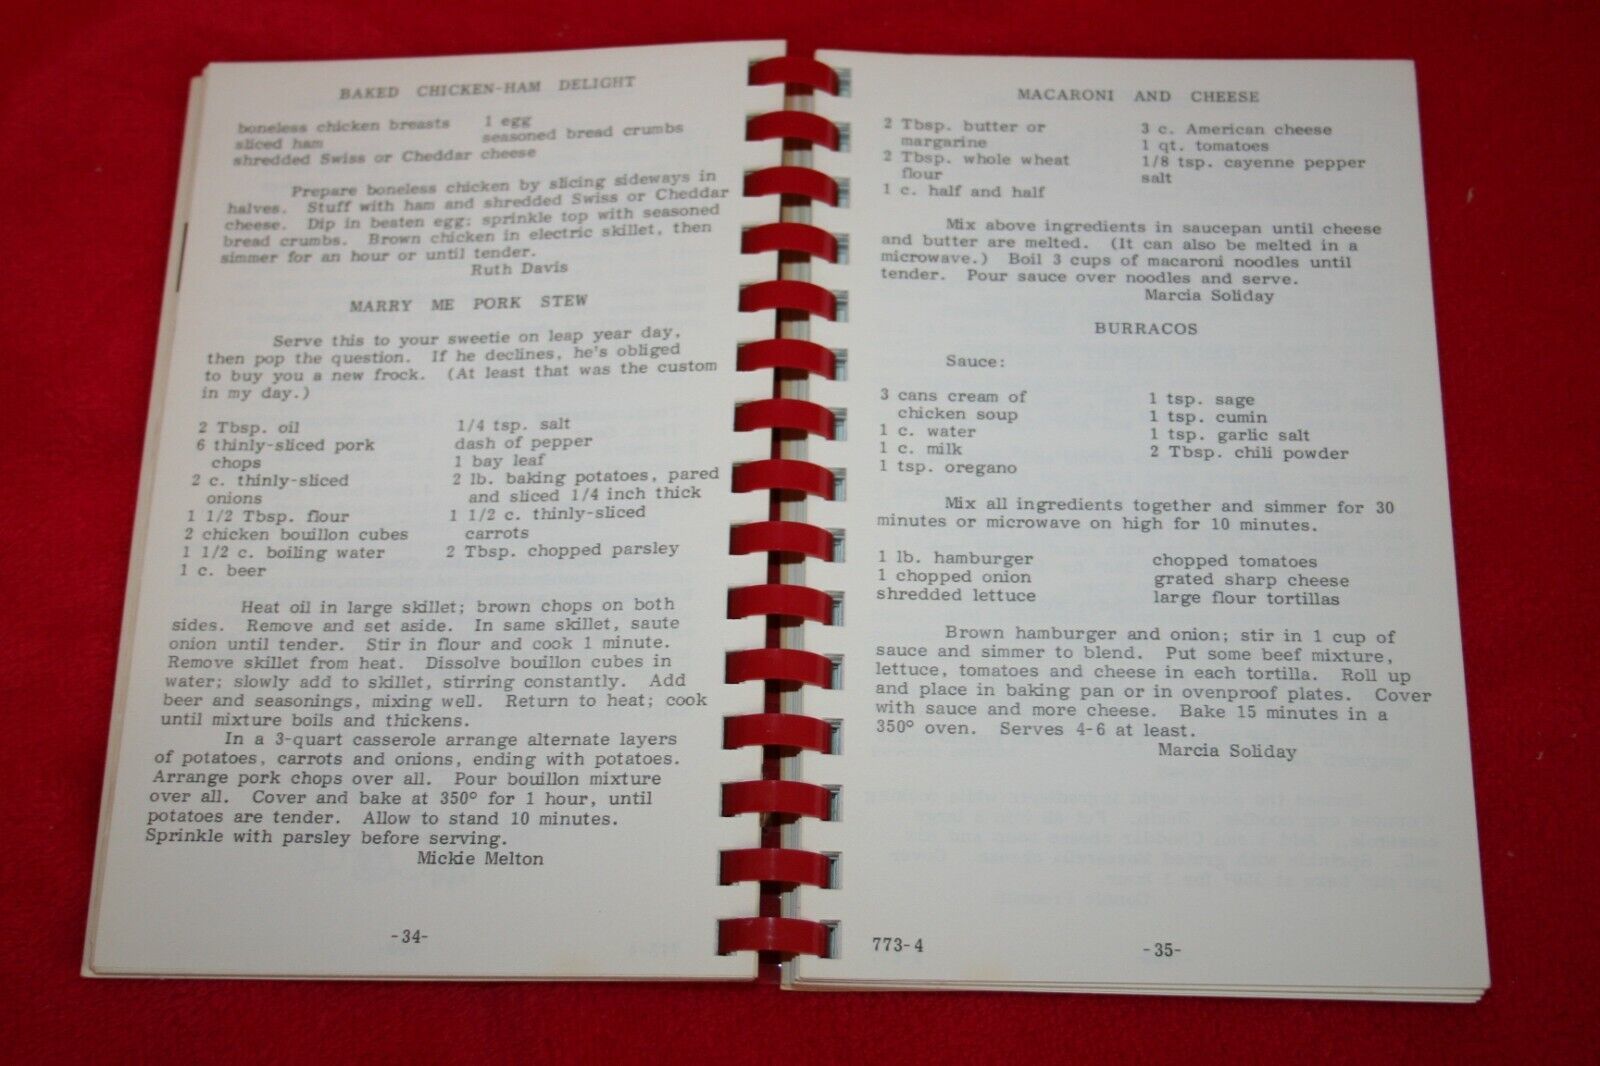 BAKED CHICKEN-HAM DELIGHT
boneless chicken breasts 1 egg
sliced ham seasoned bread crumbs
shredded Swiss or Cheddar cheese
Prepare boneless chicken by slicing sideways in
halves. Stuff with ham and shredded Swiss or Cheddar
cheese. Dip in beaten egg; sprinkle top with seasoned
bread crumbs. Brown chicken in electric skillet, then
simmer for an hour or until tender.
Ruth Davis
MARRY ME PORK STEW
Serve this to your sweetie on leap year day,
then pop the question. If he declines, he's obliged
to buy you a new frock. (At least that was the custom
in my day.)
2 Tbsp. oil
6 thinly-sliced pork
chops
2 c. thinly-sliced
onions
1 1/2 Tbsp. flour
2 chicken bouillon cubes
1 1/2 c. boiling water
1 c. beer
1/4 tsp. salt
dash of pepper
1 bay leaf
2 lb. baking potatoes, pared
and sliced 1/4 inch thick
1 1/2 c. thinly-sliced
carrots
2 Tbsp. chopped parsley
Heat oil in large skillet; brown chops on both
sides. Remove and set aside. In same skillet, saute
onion until tender. Stir in flour and cook 1 minute.
Remove skillet from heat. Dissolve bouillon cubes in
water; slowly add to skillet, stirring constantly. Add
beer and seasonings, mixing well. Return to heat; cook
until mixture boils and thickens.
In a 3-quart casserole arrange alternate layers
of potatoes, carrots and onions, ending with potatoes.
Arrange pork chops over all. Pour bouillon mixture
over all. Cover and bake at 350° for 1 hour, until
potatoes are tender. Allow to stand 10 minutes.
Sprinkle with parsley before serving.
Mickie Melton
-34-
MACARONI AND CHEESE
2 Tbsp. butter or
margarine
2 Tbsp. whole wheat
flour
1 c. half and half
3 c. American cheese
1 qt. tomatoes
1/8 tsp. cayenne pepper
salt
Mix above ingredients in saucepan until cheese
and butter are melted. (It can also be melted in a
microwave.) Boil 3 cups of macaroni noodles until
tender. Pour sauce over noodles and serve.
Marcia Soliday
BURRACOS
Sauce:
3 cans cream of
chicken soup
1 c. water
1 c. milk
1 tsp. oregano
1 tsp. sage
1 tsp. cumin
1 tsp. garlic salt
2 Tbsp. chili powder
Mix all ingredients together and simmer for 30
minutes or microwave on high for 10 minutes.
1 lb. hamburger
1 chopped onion
shredded lettuce
chopped tomatoes
grated sharp cheese
large flour tortillas
Brown hamburger and onion; stir in 1 cup of
sauce and simmer to blend. Put some beef mixture,
lettuce, tomatoes and cheese in each tortilla. Roll up
and place in baking pan or in ovenproof plates. Cover
with sauce and more cheese. Bake 15 minutes in a
350° oven. Serves 4-6 at least.
Marcia Soliday
773-4 -35-